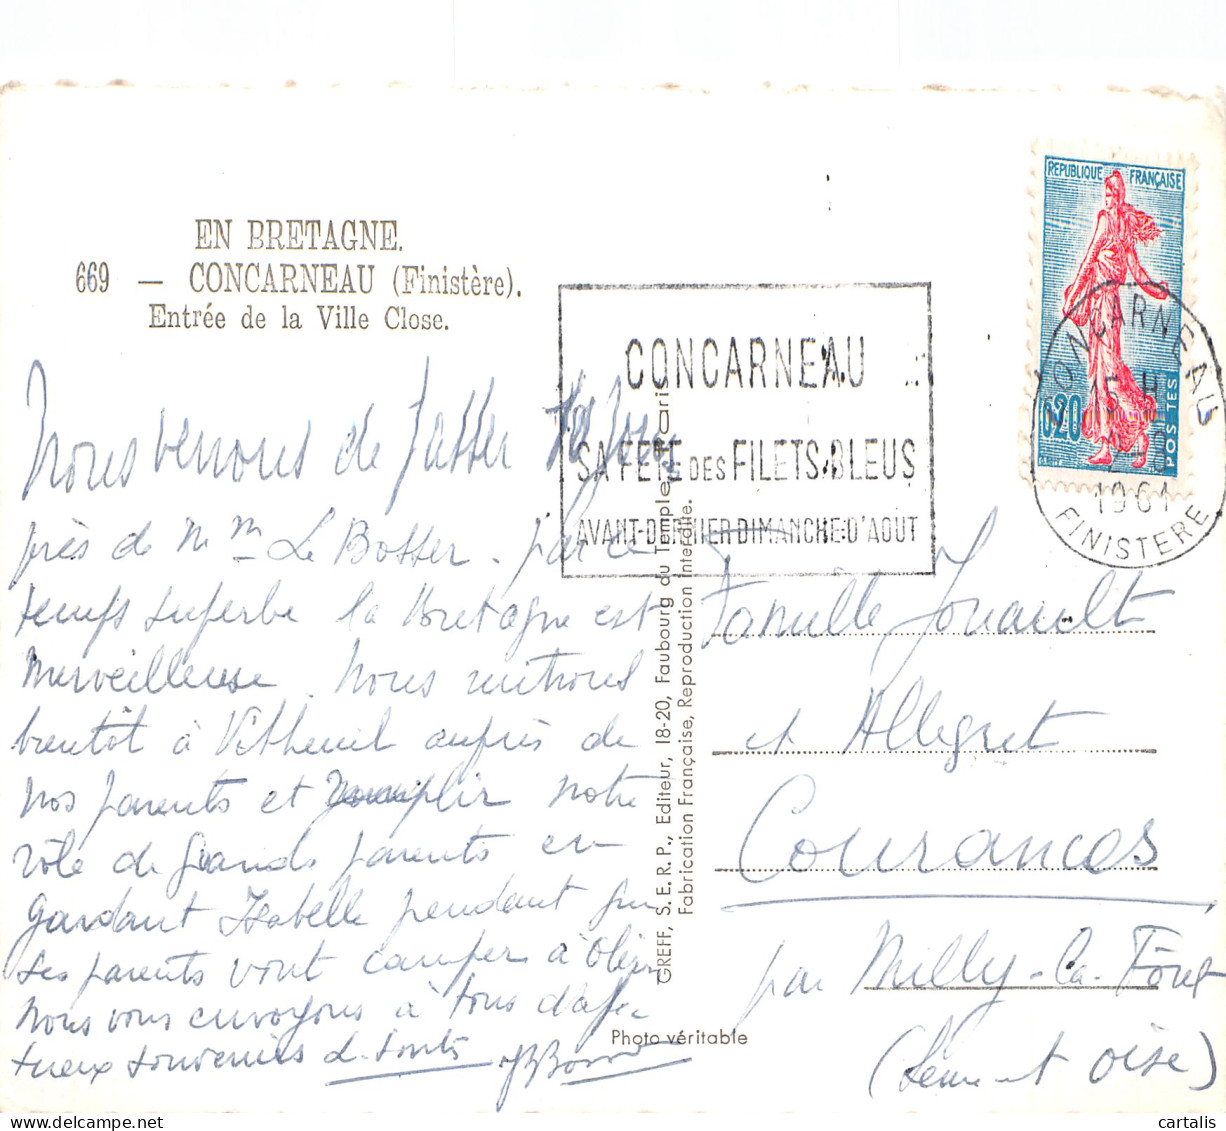 EN BRETAGNE.
669 — CONCARNEAU (Finistère).
Entrée de la Ville Close.
REPUBLIQUE FRANÇAISE
0,20
POSTES
CONCARNEAU
15 H
1961
FINISTERE
CONCARNEAU
SA FETE DES FILETS BLEUS
AVANT-DERNIER DIMANCHE D'AOUT
Nous venons de passer
près de M Mme Le Bosser. par ce
temps superbe la Bretagne est
merveilleuse. Nous rentrons
bientôt à Vétheuil auprès de
nos parents et remplir notre
rôle de grands parents en
gardant Isabelle pendant que
ses parents vont camper à
Nous vous envoyons à tous d'affec
tueux souvenirs
GREFF, S. E. R. P., Editeur, 18-20, Faubourg du Temple, Paris
Fabrication Française, Reproduction Interdite.
Photo véritable
Famille Jouault
et Allegret
Courances
par Milly-la-Forêt
(Seine et Oise)
cartalis